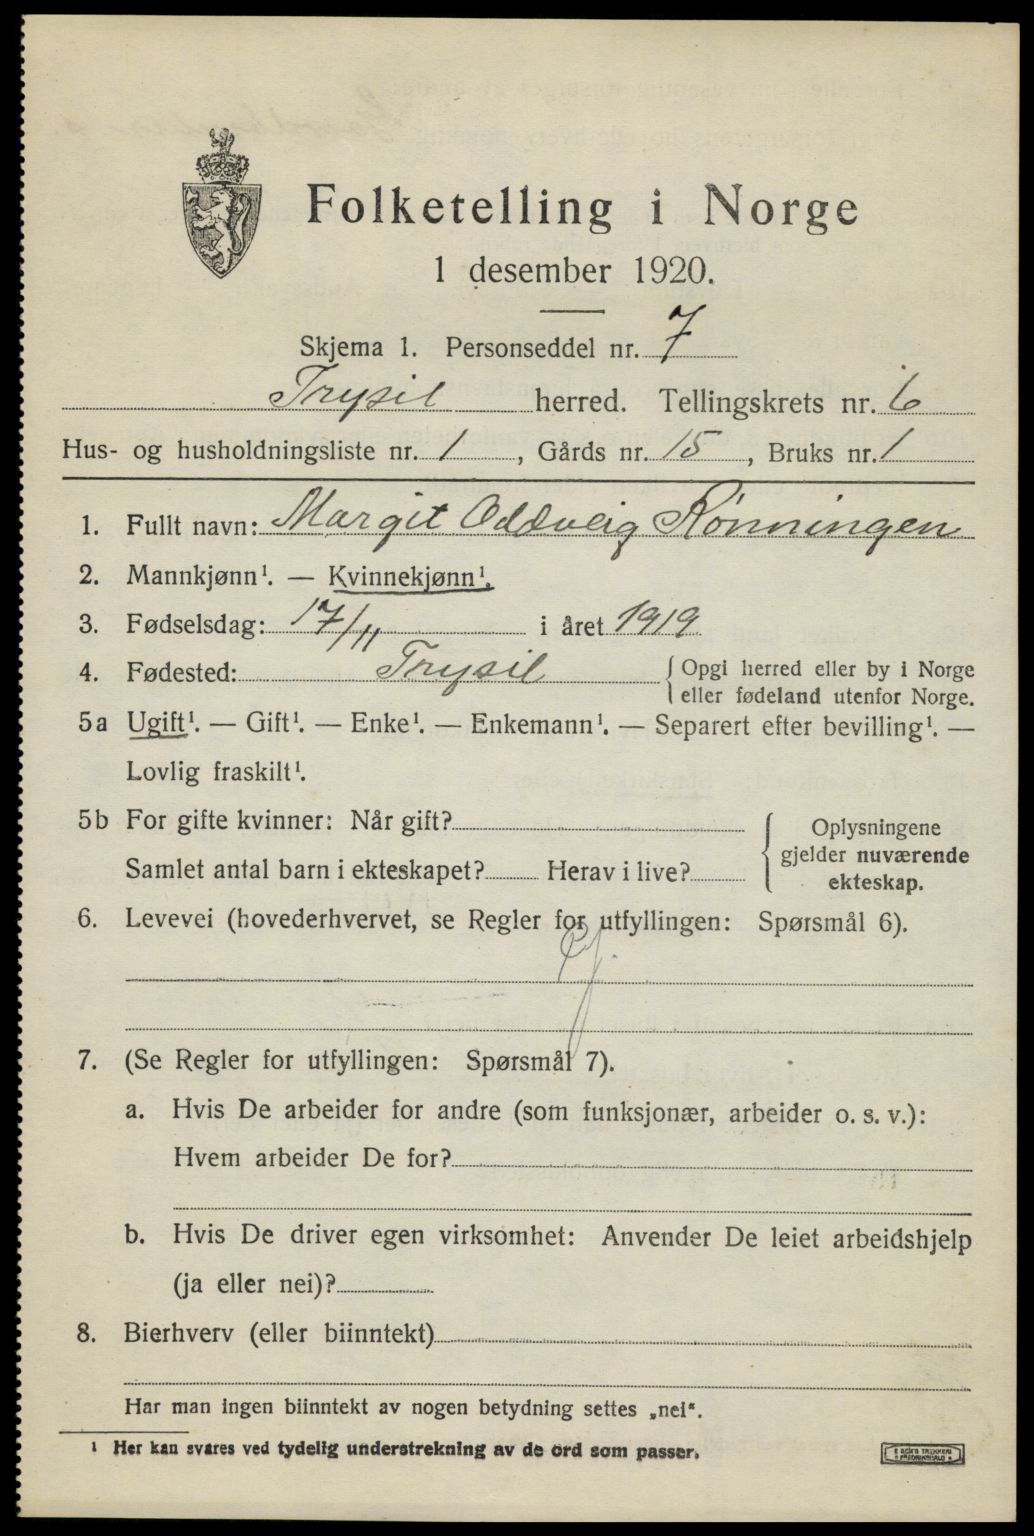 Folketelling i Norge
1 desember 1920.
Skjema 1. Personseddel nr. 7
Trysil herred. Tellingskrets nr. 6
Hus- og husholdningsliste nr. 1, Gårds nr. 15, Bruks nr. 1
1. Fullt navn: Margit Oddveig Rønningen
2. Mannkjønn¹. — Kvinnekjønn¹.
3. Fødselsdag: 17/11 i året 1919
4. Fødested: Trysil { Opgi herred eller by i Norge
eller fødeland utenfor Norge.
5a Ugift¹. — Gift¹. — Enke¹. — Enkemann¹. — Separert efter bevilling¹. —
Lovlig fraskilt¹.
5b For gifte kvinner: Når gift?
Samlet antal barn i ekteskapet? Herav i live?
{ Oplysningene
gjelder nuværende
ekteskap.
6. Levevei (hovederhvervet, se Regler for utfyllingen: Spørsmål 6).
7. (Se Regler for utfyllingen: Spørsmål 7).
a. Hvis De arbeider for andre (som funksjonær, arbeider o. s. v.):
Hvem arbeider De for?
b. Hvis De driver egen virksomhet: Anvender De leiet arbeidshjelp
(ja eller nei)?
8. Bierhverv (eller biinntekt)
Har man ingen biinntekt av nogen betydning settes „nei“.
¹ Her kan svares ved tydelig understrekning av de ord som passer.